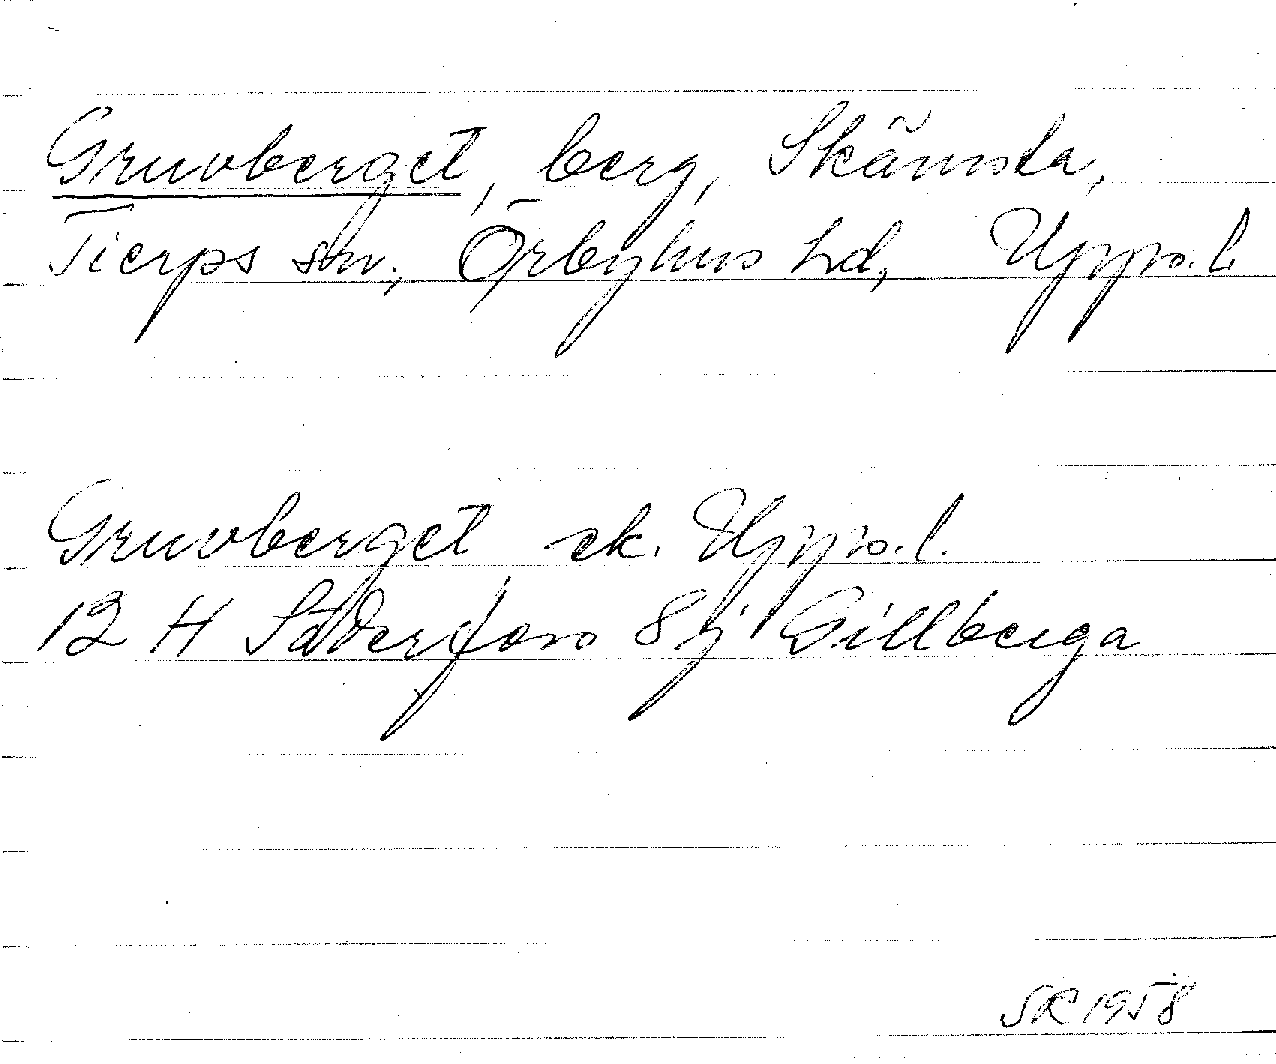 Gruvberget, berg, Skämsta,
Tierps sn., Örbyhus hd, Upps. l.
Gruvberget ek. Upps. l.
12 H Söderfors 8 j Gillberga
SR 1958